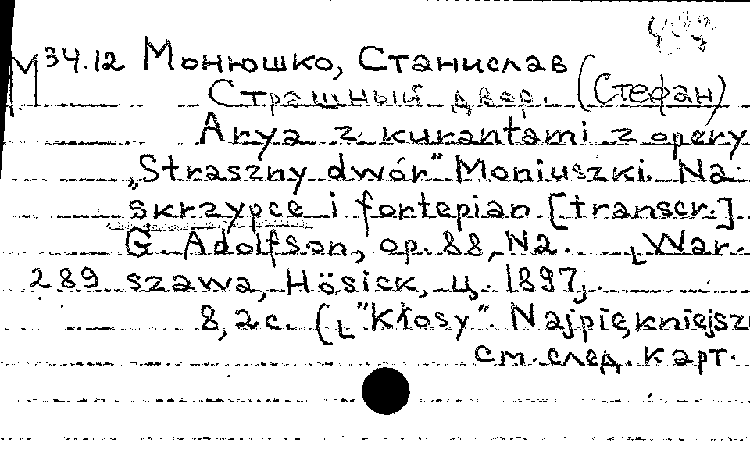 М 34.12 Монюшко, Станислав
Страшный двор. (Стефан)
Arya z kurantami z opery
„Straszny dwór" Moniuszki. Na
skrzypce i fortepian [transcr.].
G. Adolfson, op. 88, N2. [War.
289 szawa, Hösick, ц. 1897].
8,2 с. ([„Kłosy". Najpiękniejsz
см. след. карт.